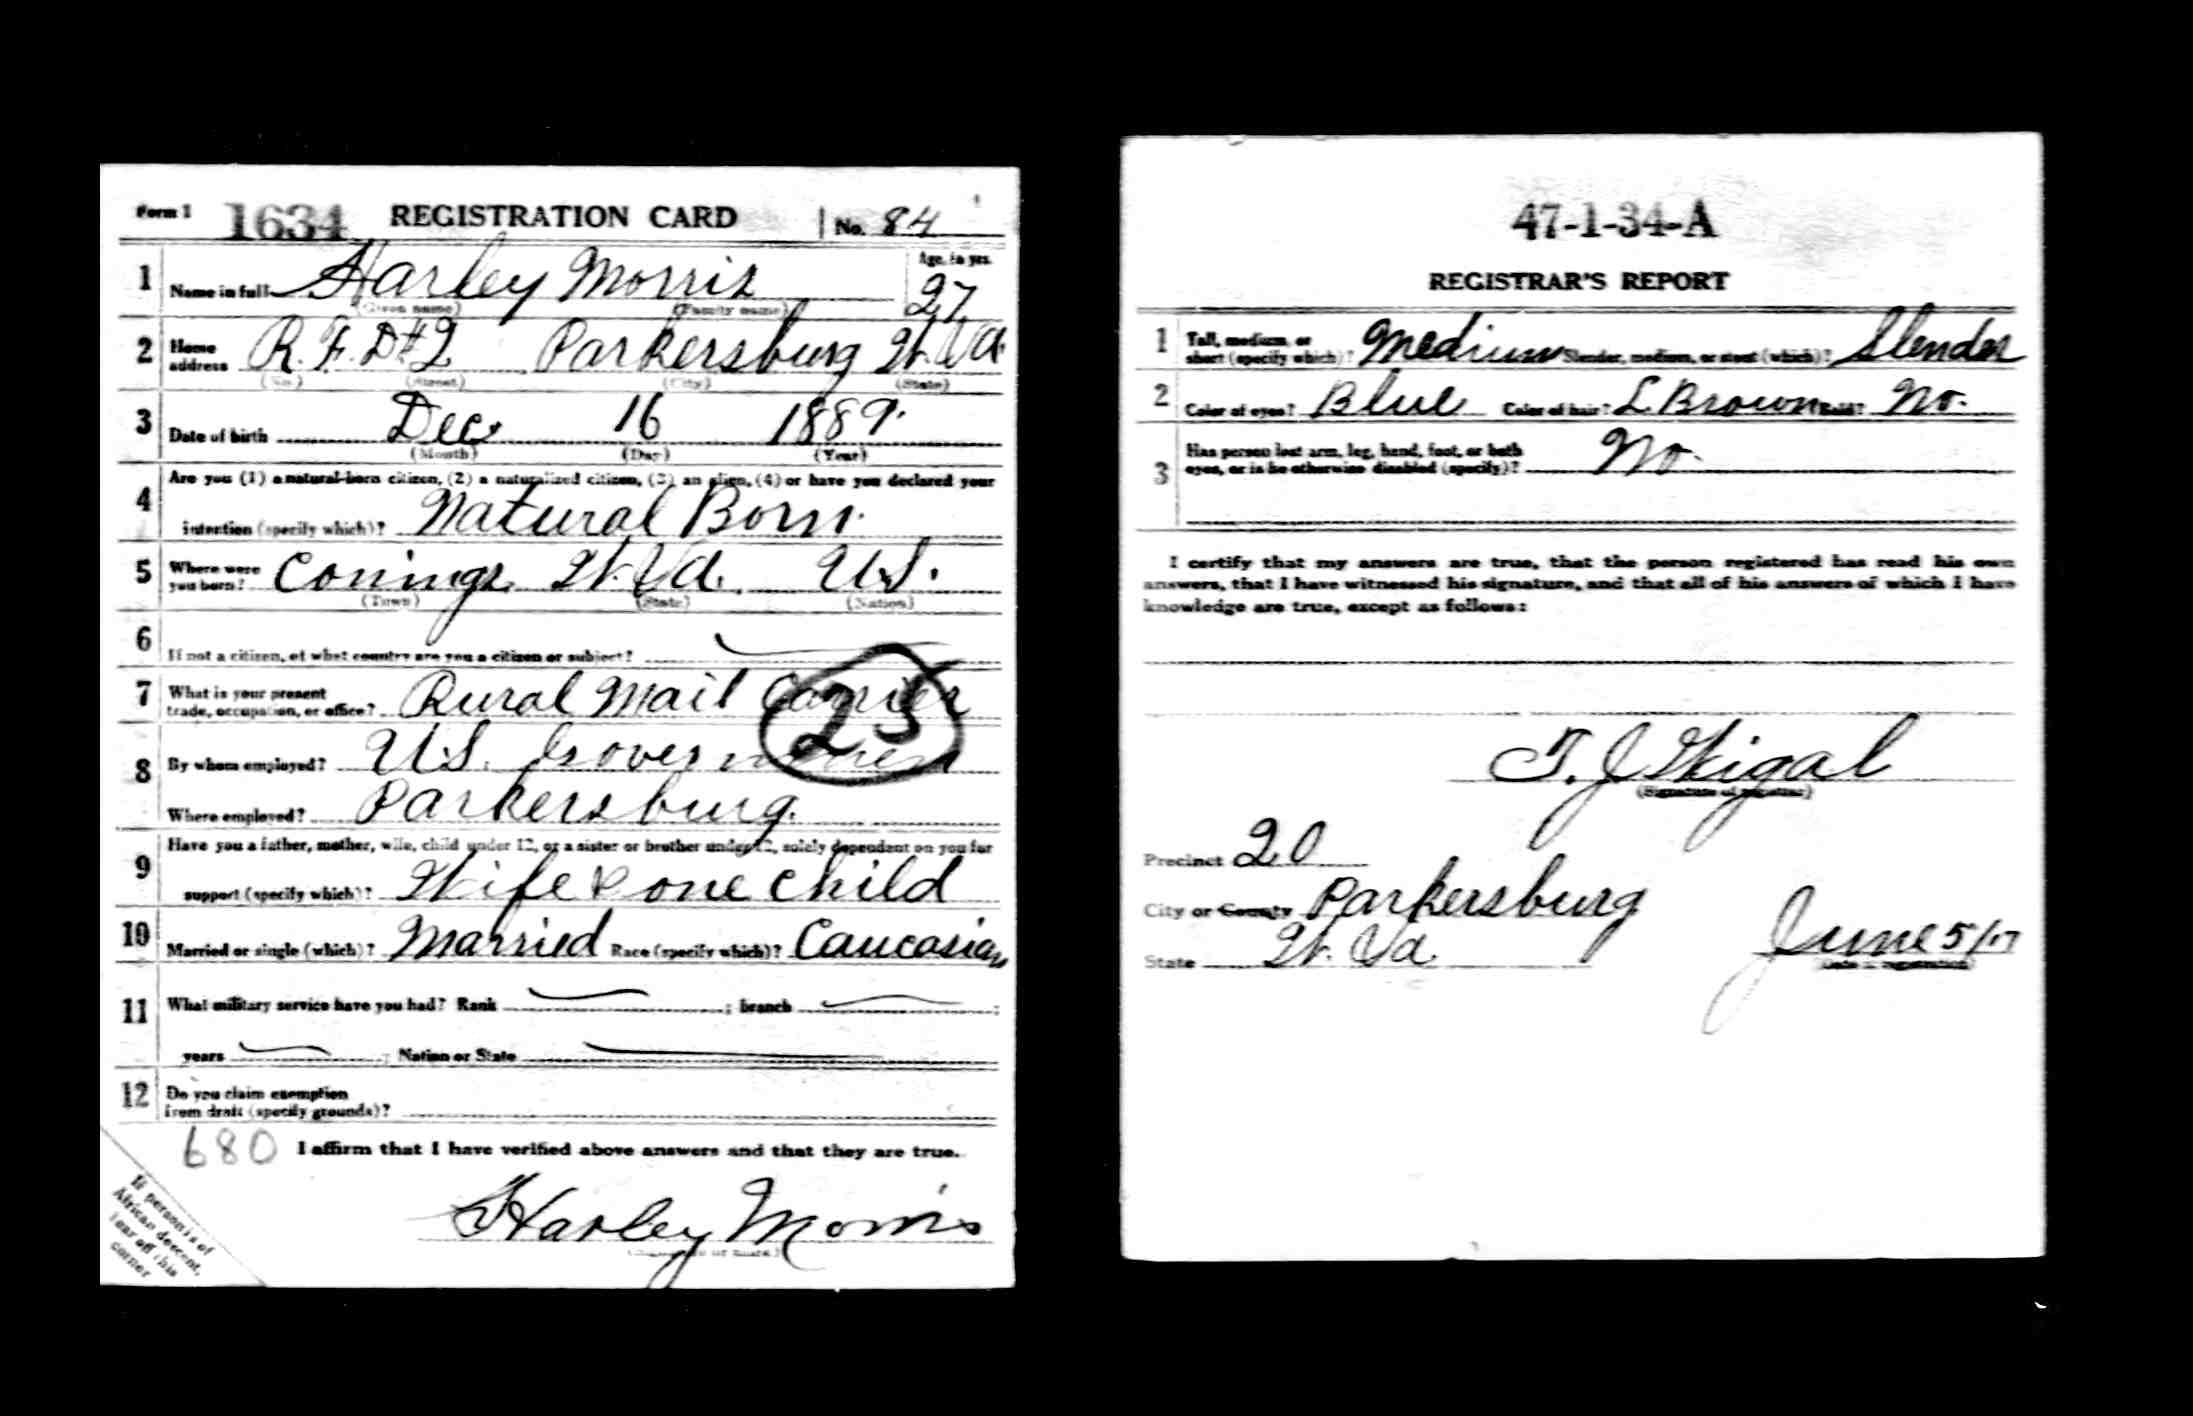 Form 1 1634 REGISTRATION CARD No. 84
1 Name in full Harley Morris Age, in yrs. 27
(Given name) (Family name)
2 Home address R. F. D #2 Parkersburg W. Va.
(No.) (Street) (City) (State)
3 Date of birth Dec. 16 1889.
(Month) (Day) (Year)
4 Are you (1) a natural-born citizen, (2) a naturalized citizen, (3) an alien, (4) or have you declared your
intention (specify which)? Natural Born.
5 Where were you born? Conings W. Va. U.S.
(Town) (State) (Nation)
6 If not a citizen, of what country are you a citizen or subject?
7 What is your present
trade, occupation, or office? Rural Mail Carrier
23
8 By whom employed? U.S. Government
Where employed? Parkersburg.
9 Have you a father, mother, wife, child under 12, or a sister or brother under 12, solely dependent on you for
support (specify which)? Wife & one child
10 Married or single (which)? Married Race (specify which)? Caucasian
11 What military service have you had? Rank ; branch ;
years ; Nation or State
12 Do you claim exemption
from draft (specify grounds)?
680 I affirm that I have verified above answers and that they are true.
Harley Morris
If person is of
African descent,
tear off this
corner
47-1-34-A
REGISTRAR'S REPORT
1 Tall, medium, or
short (specify which)? Medium Slender, medium, or stout (which)? Slender
2 Color of eyes? Blue Color of hair? L Brown Bald? No.
3 Has person lost arm, leg, hand, foot, or both
eyes, or is he otherwise disabled (specify)? No.
I certify that my answers are true, that the person registered has read his own
answers, that I have witnessed his signature, and that all of his answers of which I have
knowledge are true, except as follows:
T. J. Wigal
(Signature of registrar)
Precinct 20
City or County Parkersburg
State W. Va. June 5/17
(Date of registration)